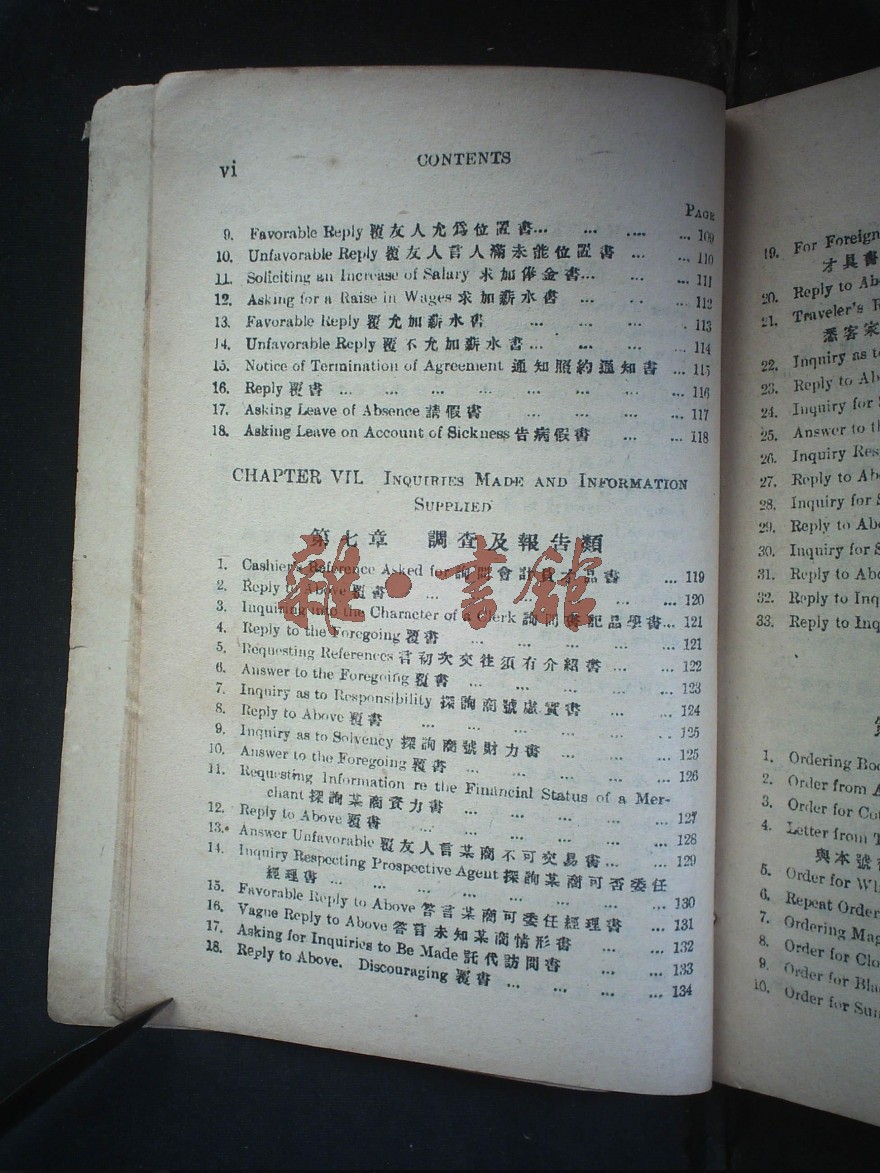 vi
CONTENTS
PAGE
9. Favorable Reply 覆友人允爲位置書... ... .... ... 109
10. Unfavorable Reply 覆友人言人滿未能位置書 ... ... ... 110
11. Soliciting an Increase of Salary 求加俸金書... ... ... ... 111
12. Asking for a Raise in Wages 求加薪水書 ... ... ... 112
13. Favorable Reply 覆允加薪水書 ... ... ... 113
14. Unfavorable Reply 覆不允加薪水書... ... ... ... 114
15. Notice of Termination of Agreement 通知照約通知書 ... 115
16. Reply 覆書 ... ... ... ... ... ... ... ... 116
17. Asking Leave of Absence 請假書 ... ... ... ... 117
18. Asking Leave on Account of Sickness 告病假書 ... ... 118
CHAPTER VII. INQUIRIES MADE AND INFORMATION
SUPPLIED
第七章 調查及報告類
1. Cashier's Reference Asked for 詢問會計員才品書 ... 119
2. Reply to Above 覆書 ... ... ... ... 120
3. Inquiring into the Character of a Clerk 詢問書記品學書... 121
4. Reply to the Foregoing 覆書 ... ... ... ... 121
5. Requesting References 言初次交往須有介紹書 ... ... 122
6. Answer to the Foregoing 覆書 ... ... ... ... ... 123
7. Inquiry as to Responsibility 探詢商號虛實書 ... ... 124
8. Reply to Above 覆書 ... ... ... ... ... 125
9. Inquiry as to Solvency 探詢商號財力書 ... ... ... 125
10. Answer to the Foregoing 覆書 ... ... ... ... ... 126
11. Requesting Information re the Financial Status of a Mer-
chant 探詢某商資力書 ... ... ... ... ... 127
12. Reply to Above 覆書 ... ... ... ... ... ... 128
13. Answer Unfavorable 覆友人言某商不可交易書... ... 129
14. Inquiry Respecting Prospective Agent 探詢某商可否委任
經理書 ... ... ... ... ... ... ... 130
15. Favorable Reply to Above 答言某商可委任經理書 ... 131
16. Vague Reply to Above 答言未知某商情形書 ... ... 132
17. Asking for Inquiries to Be Made 託代訪問書 ... ... 133
18. Reply to Above. Discouraging 覆書 ... ... ... ... 134
雜·書館
19. For Foreign
才具書
20. Reply to Ab
21. Traveler's R
悉客家
22. Inquiry as to
23. Reply to Ab
24. Inquiry for
25. Answer to th
26. Inquiry Res
27. Reply to Ab
28. Inquiry for S
29. Reply to Ab
30. Inquiry for S
31. Reply to Abo
32. Reply to Inq
33. Reply to Inq
1. Ordering Boo
2. Order from A
3. Order for Cot
4. Letter from T
與本號
5. Order for Wh
6. Repeat Order
7. Ordering Mag
8. Order for Clo
9. Order for Bla
10. Order for Sum